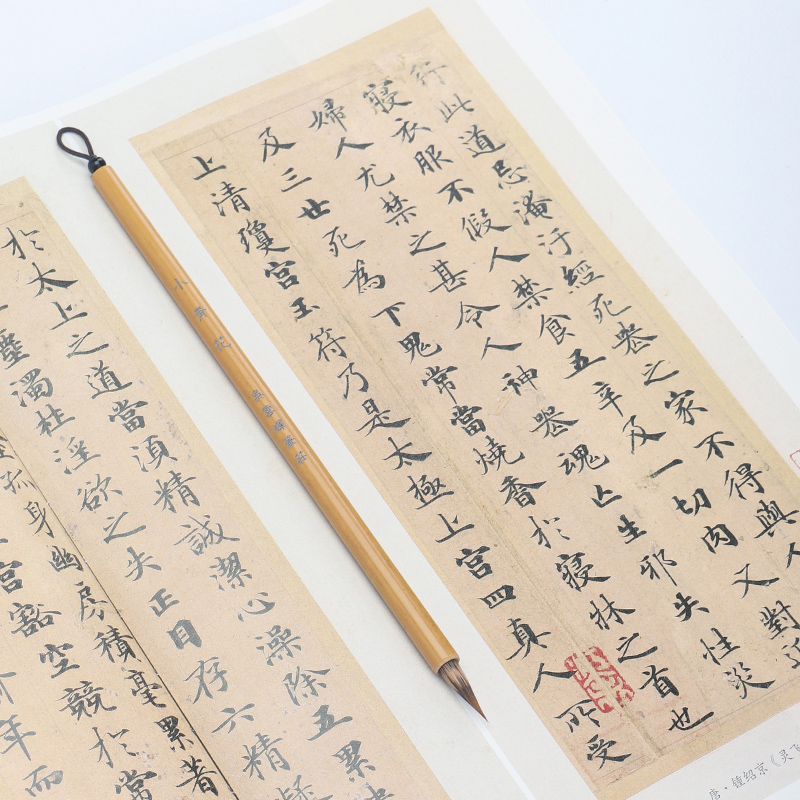 行此道忌淹汙經死喪之家不得與人
寢衣服不假人禁食五辛及一切肉又對近
婦人尤禁之甚令人神喪魂亡生邪失性災
及三世死為下鬼常當燒香於寢牀之首也
上清瓊宮玉符乃是太極上宮四真人所受
於太上之道當須精誠潔心澡除五累
塵濁杜淫欲之失正目存六精凝
孤身幽房積毫累著
宮豁空競於常
年而
唐·鍾绍京《灵飞